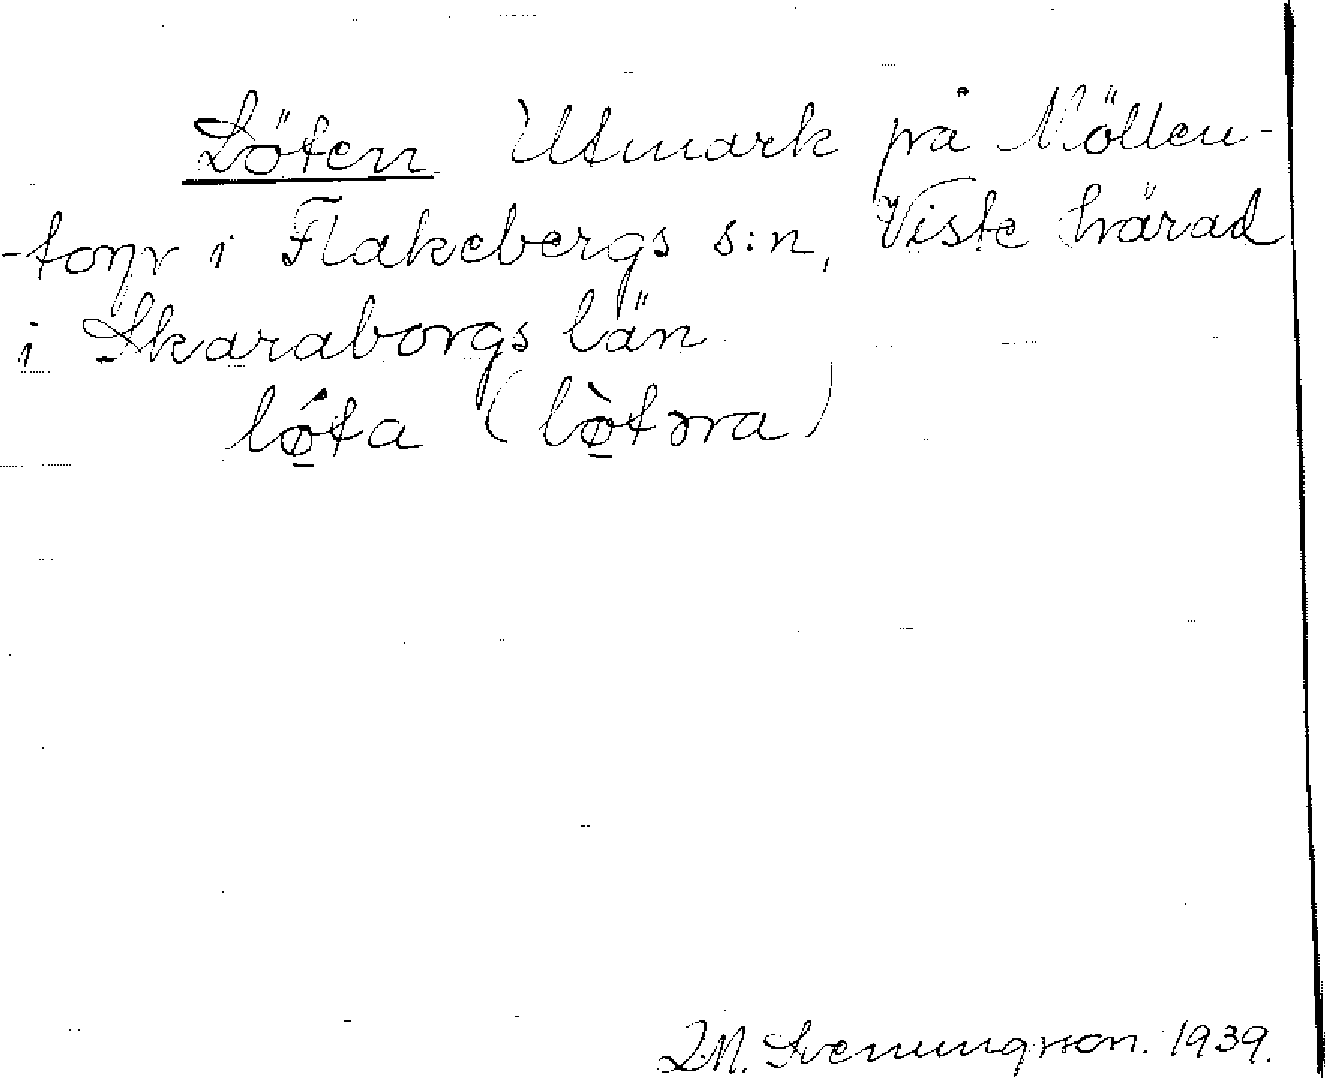 Löten Utmark på Möllen-
-torp i Flakebergs s:n, Viste härad
i Skaraborgs län
lǿ̱ta (lø̱̀tɔra)
D.N. Svenungsson. 1939.